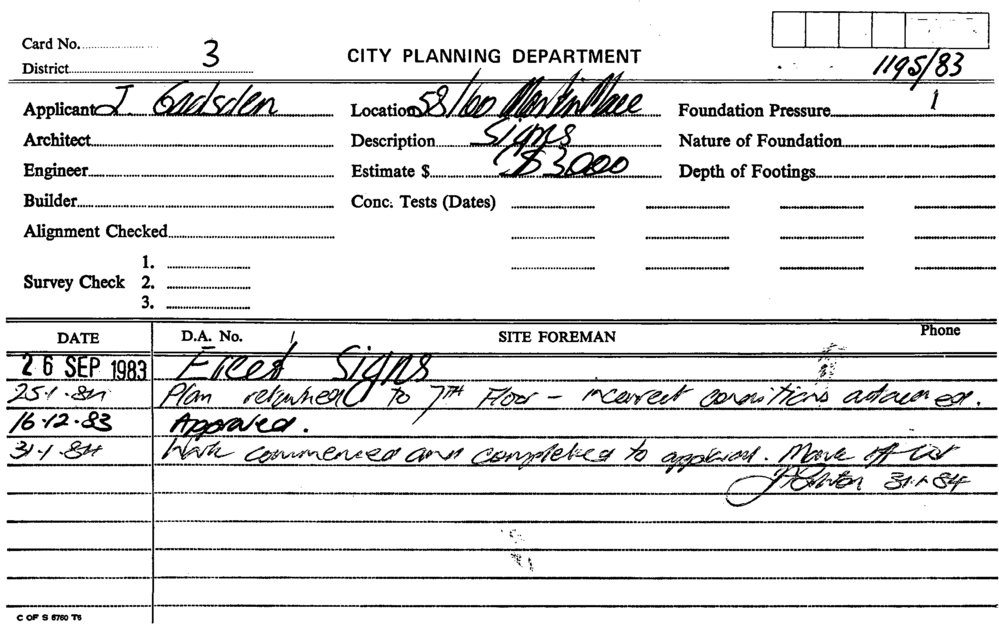 Card No.
District 3
CITY PLANNING DEPARTMENT
1195/83
Applicant J. Gadsden
Location 58/60 Martin Place
Foundation Pressure
Architect
Description Signs
Nature of Foundation
Engineer
Estimate $ $3000
Depth of Footings
Builder
Conc. Tests (Dates)
Alignment Checked
Survey Check 1.
2.
3.
DATE D.A. No. SITE FOREMAN Phone
26 SEP 1983 Erect Signs
25.1.84 Plan returned to 7TH Floor - incorrect conditions attached.
16.12.83 Approved.
31.1.84 Work commenced and completed to approval. Mark off list
31.1.84
C OF S 6760 T6